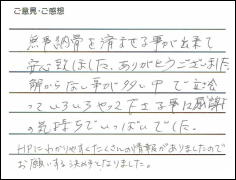 ご意見・ご感想
無事納骨を済ませる事が出来て
安心致しました。ありがとうございました。
解からない事が多い中で立会
っていろいろやって下さる事に感謝
の気持ちでいっぱいでした。
HPにわかりやすくたくさんの情報がありましたので
お願いする決め手となりました。